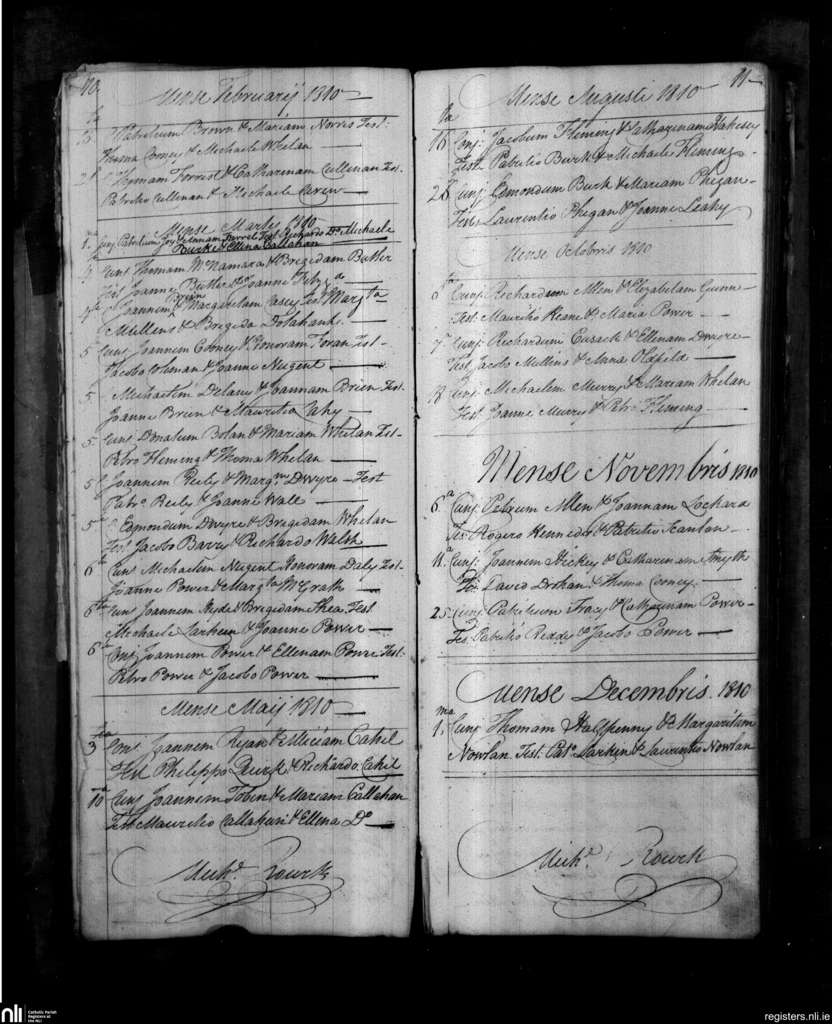 10
Mense Februarij 1810
Patritium Brown & Mariam Norris Test:
Thoma Cooney & Michaele Whelan
Thomam Forrist & Catharinam Cullenan Test.
Patritio Cullenan & Michaele
Mense Martij 1810
1. Cunj Patritium & Annam Test Richardo & Michaele
Burke & Ellena Callahan
Cunj Thomam McNamara & Bregidam Butler
Test Joanne Butler & Joanne
Joannem Brien & Margaretam Casey Test Margta
Mullens & Bregida
5 Cunj Joannem Cooney & Honoram Foran Test
Jacobo Whenan & Joanne Nugent
5 Michaelem Delany & Joannam Brien Test.
Joanne Brien & Mauritio Cahy
5 Cunj Donatum Bolan & Mariam Whelan Test
Petro Fleming & Thoma Whelan
5 Joannem Reily & Margm Dwyre Test
Patro Reily & Joanne Wall
5 Edmondum Dwyre & Bregidam Whelan
Test Jacobo Barry & Richardo Walsh
6 Cunj Michaelem Nugent Honoram Daly Test
Joanne Power & Margta McGrath
6 Cunj Joannem & Bregidam Shea Test
Michaele Larken & Joanne Power
6 Conj Joannem Power & Ellenam Power Test
Petro Power & Jacobo Power
Mense Maij 1810
3 Conj Joannem Ryan & Miriam Cahil
Test Philippo & Richardo Cahil
10 Cunj Joannem Tobin & Mariam Callahan
Test Mauritio Callahan & Ellena Do
Michl. Rourk
11
Mense Augusti 1810
16 Conj: Jacobum Fleming & Catharinam
Test Patritio Burk & Michaele Fleming
28 Cunj Edmondum Burk & Mariam Phegan
Test Laurentio Phegan & Joanne Leahy
Mense Octobris 1810
Cunj Richardum Allen & Elizabetam Guinn
Test Mauritio Keane & Maria Power
7 Cunj: Richardum Cusack & Ellenam Dwyre
Test Jacobo Mullins & Anna Oldfild
18 Cunj Michaelem Murry & Mariam Whelan
Test Joanne Murry & Patr Fleming
Mense Novembris 1810
6a Cunj Petrum Allen & Joannam Lochard
Tes Rogero Kennedy & Patritio Scanlan
11. Cunj: Joannem Hickey & Catharinam Smyth
Tes: David Drohan & Thoma Cooney
25 Cunj Patritium Tracy & Catharinam Power
Tes Patritio & Jacobo Power
Mense Decembris. 1810
1. Cunj Thomam Halfpenny & Margaritam
Nowlan. Test. Pat. Larken & Laurentio Nowlan
Michl. Rourk
nli
Catholic Parish
Registers at
the NLI
registers.nli.ie